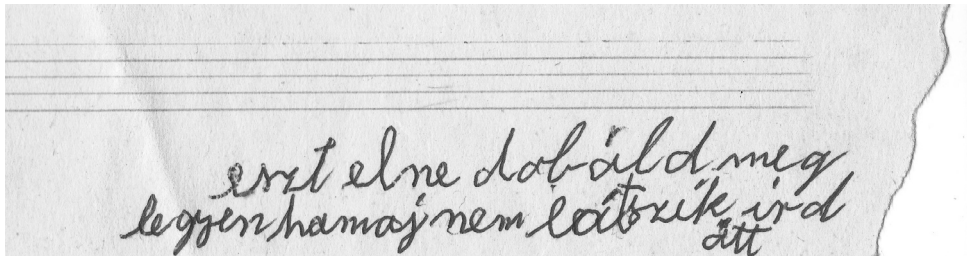 eszt el ne dobáld meg
legyen hamaj nem látszik ird
átt